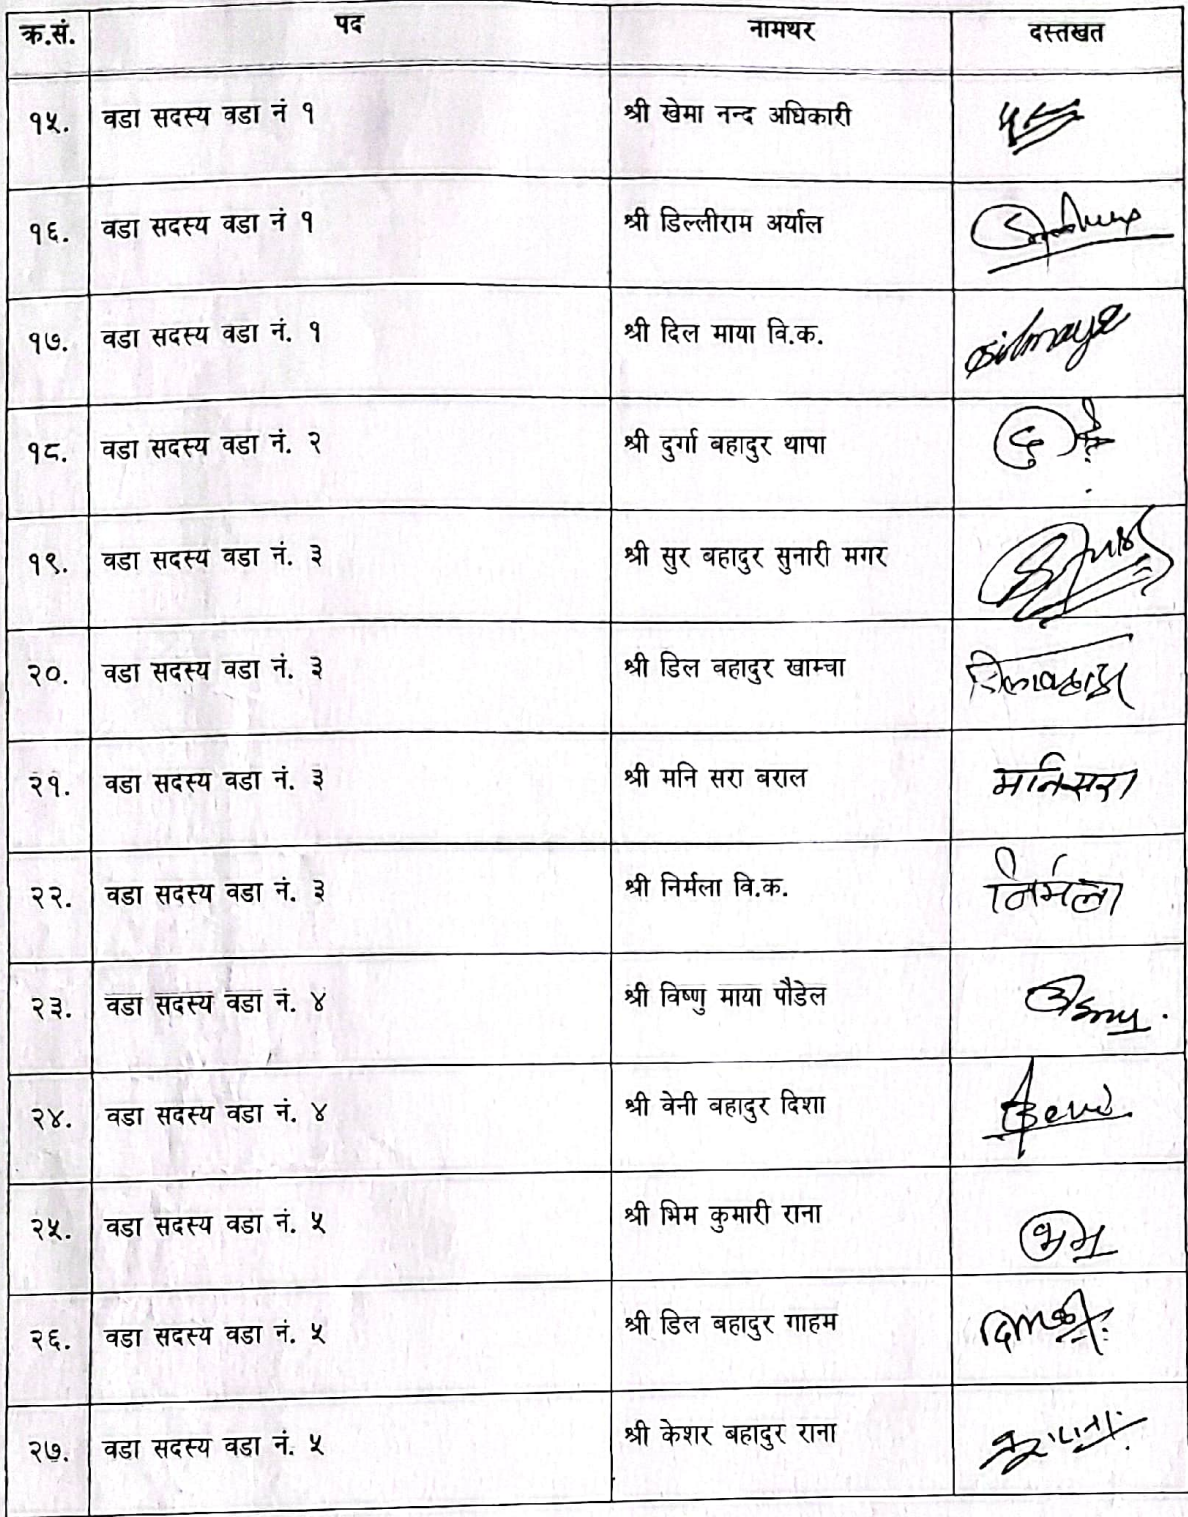 क्र.सं. पद नामथर दस्तखत
१५. वडा सदस्य वडा नं १ श्री खेमा नन्द अधिकारी
१६. वडा सदस्य वडा नं १ श्री डिल्लीराम अर्याल
१७. वडा सदस्य वडा नं. १ श्री दिल माया वि.क. Dilmaya
१८. वडा सदस्य वडा नं. २ श्री दुर्गा बहादुर थापा
१९. वडा सदस्य वडा नं. ३ श्री सुर बहादुर सुनारी मगर
२०. वडा सदस्य वडा नं. ३ श्री डिल वहादुर खाम्चा
२१. वडा सदस्य वडा नं. ३ श्री मनि सरा बराल मनिसरा
२२. वडा सदस्य वडा नं. ३ श्री निर्मला वि.क. निर्मला
२३. वडा सदस्य वडा नं. ४ श्री विष्णु माया पौडेल
२४. वडा सदस्य वडा नं. ४ श्री वेनी वहादुर दिशा
२५. वडा सदस्य वडा नं. ५ श्री भिम कुमारी राना
२६. वडा सदस्य वडा नं. ५ श्री डिल बहादुर गाहम
२७. वडा सदस्य वडा नं. ५ श्री केशर बहादुर राना